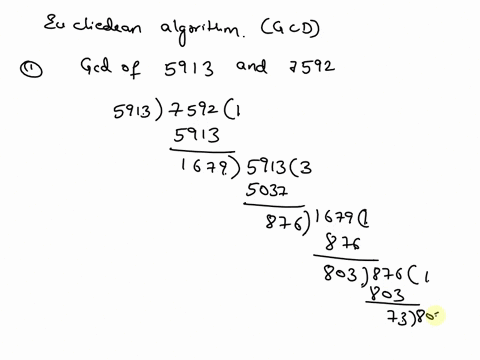 Eucliedean algorithm. (GCD)
(1) Gcd of 5913 and 7592
5913) 7592 (1
5913
1679) 5913 (3
5037
876) 1679 (1
876
803) 876 (1
803
73) 80